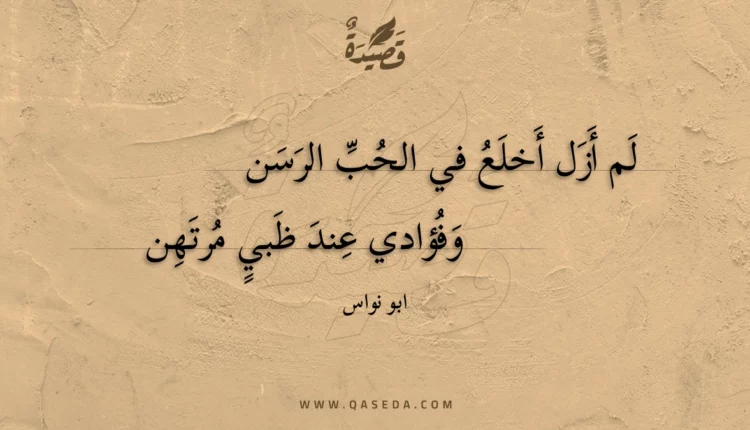 قَصِيدَةٌ
لَم أَزَل أَخلَعُ في الحُبِّ الرَسَن
وَفُؤادي عِندَ ظَبيٍ مُرتَهِن
ابو نواس
WWW.QASEDA.COM